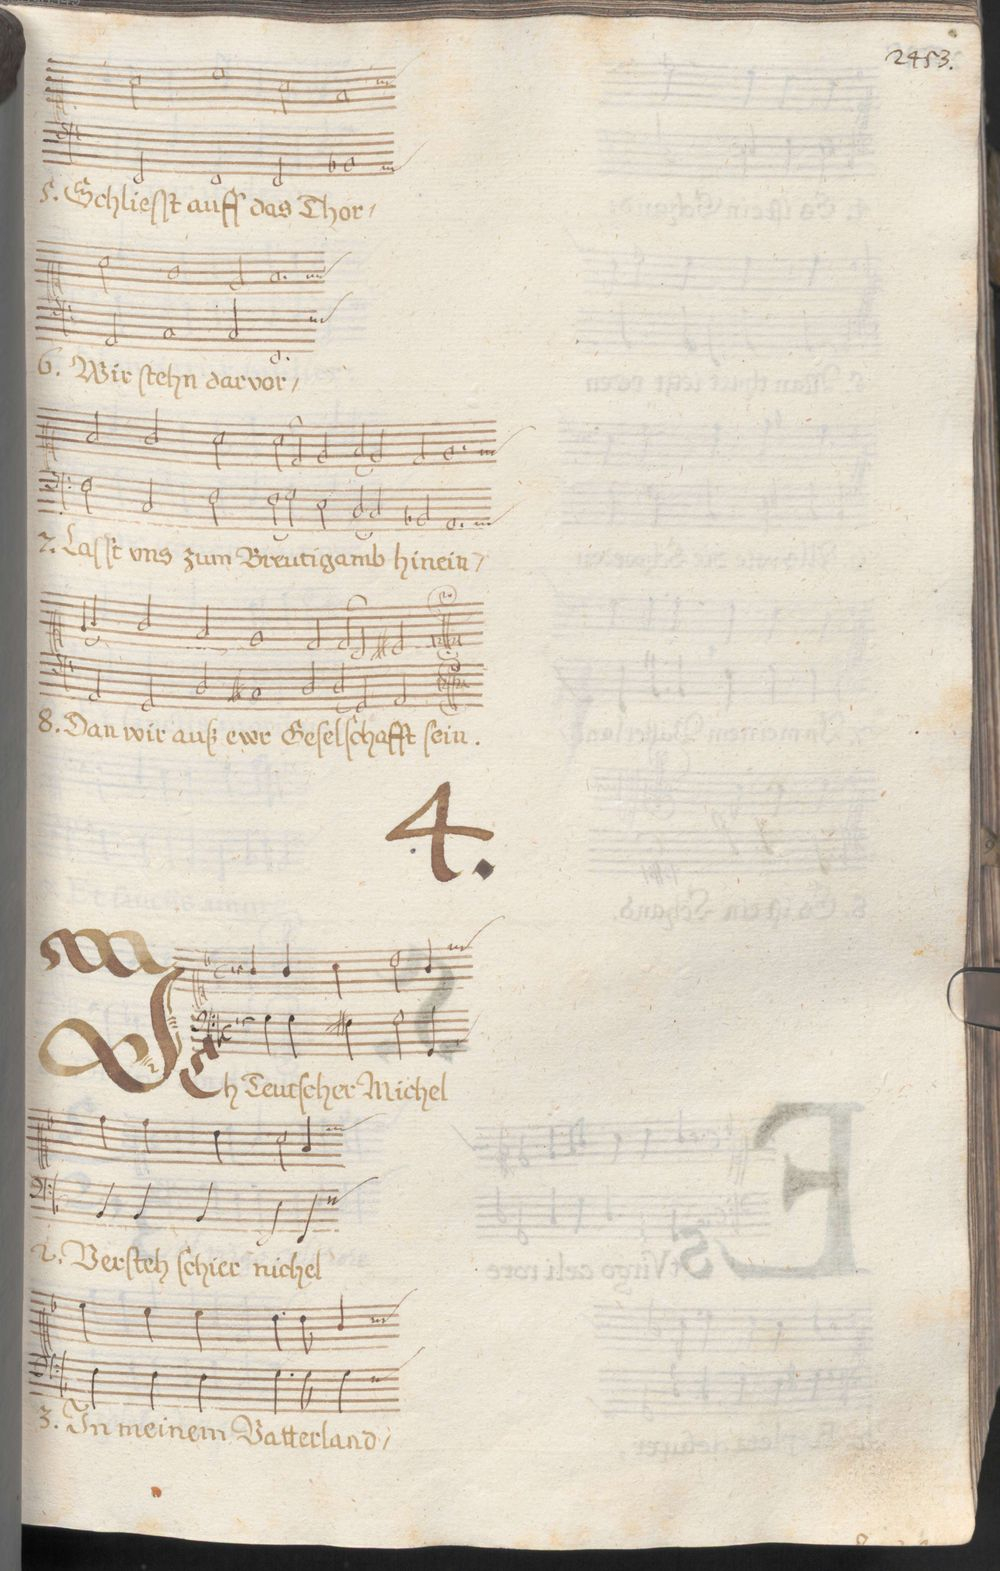 2453.
5. Schliesst auff das Thor/
6. Wir stehn darvor/
7. Lasst vns zum Breutigamb hinein/
8. Dan wir auß ewr Geselschafft sein.
4.
ICh Teutscher Michel
2. Versteh schier nichel
3. In meinem Vatterland/